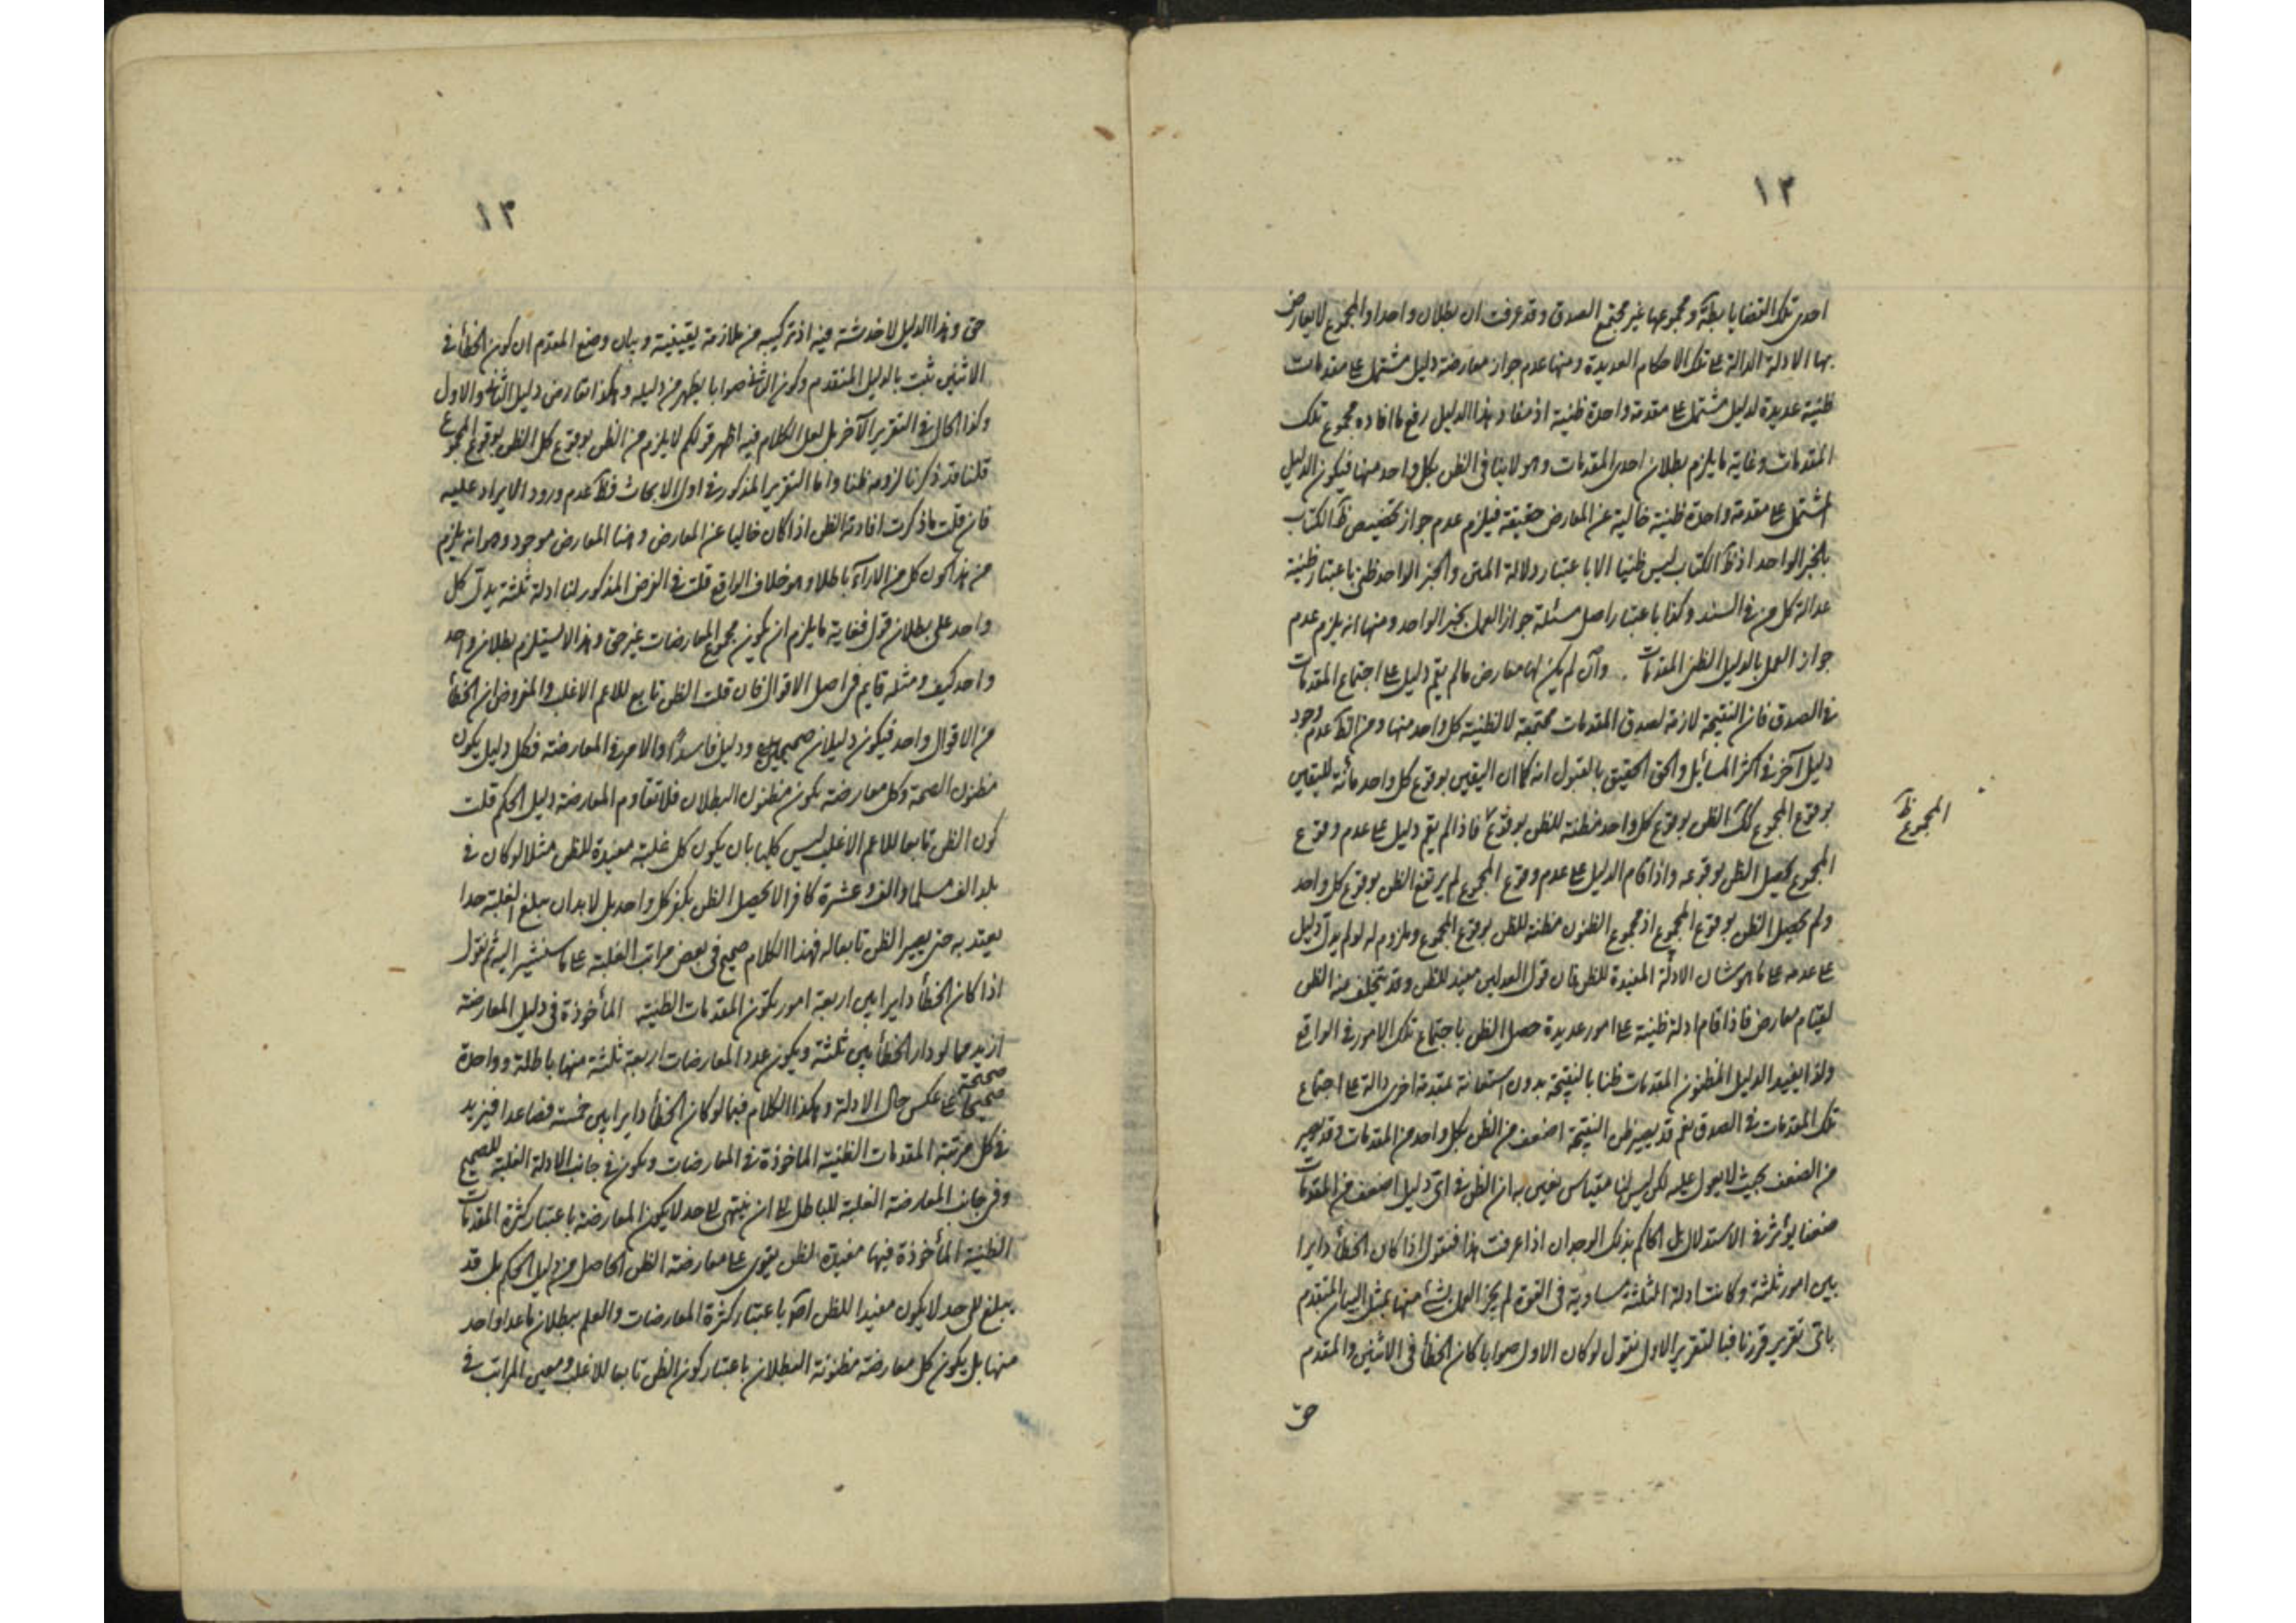 ١٢
احدى تلك القضايا بطَّة ومجموعها غير مجتمع الصدق وقد عرفت ان بطلان واحد او المجموع لا يعارض
بها الادلة الدالة على تلك الاحكام العديدة ومنها عدم جواز معارضة دليل مشتمل على مقدمات
ظنية عديدة لدليل مشتمل على مقدمة واحدة ظنية اذ مفاد هذا الدليل رفع ما افاده مجموع تلك
المقدمات وغاية ما يلزم بطلان احدى المقدمات وهو لا ينافى الظن بكل واحد منها فيكون الدليل
المشتمل على مقدمة واحدة ظنية خالية عن المعارض حقيقة فيلزم عدم جواز تخصيص ظَ الكتاب
بالخبر الواحد اذ ظَ الكتاب ليس ظنيا الا باعتبار دلالة المتن والخبر الواحد ظنى باعتبار ظنية
عدالة كل من فى السند وكذا باعتبار اصل مسئلة جواز العمل بخبر الواحد ومنها انه يلزم عدم
جواز العمل بالدليل الظنى المقدمات وان لم يكن لها معارض ما لم يقم دليل على اجتماع المقدمات
فى الصدق فان النتيجة لازمة لصدق المقدمات مجتمعة لا لظنية كل واحد منها ومن الظَ عدم وجود
دليل آخر فى اكثر المسائل والحق الحقيق بالقبول انه كما ان اليقين بوقوع كل واحد مائة لليقين
بوقوع المجموع كك الظن بوقوع كل واحد مظنة للظن بوقوع فاذا لم يقم دليل على عدم وقوع
المجموع ظ
المجموع يحصل الظن بوقوعه واذا قام الدليل على عدم وقوع المجموع لم يرتفع الظن بوقوع كل واحد
ولم يحصل الظن بوقوع المجموع اذ مجموع الظنون مظنة للظن بوقوع المجموع وملزوم له لو لم يدل دليل
على عدمه على ما هو شان الادلة المفيدة للظن فان قول العدلين مفيد للظن وقد يتخلف منه الظن
لقيام معارض فاذا قام ادلة ظنية على امور عديدة حصل الظن باجتماع تلك الامور فى الواقع
ولذا يفيد الدليل المظنون المقدمات ظنا بالنتيجة بدون استعانة بمقدمة اخرى دالة على اجتماع
تلك المقدمات فى الصدق نعم قد يصير ظن النتيجة اضعف من الظن بكل واحد من المقدمات وقد يصير
من الضعف بحيث لا يعول عليه لكن ليس لنا مقياس نعين به ان الظن فى اى دليل اضعف من المقدمات
ضعفا يؤثر فى الاستدلال بل الحاكم بذلك الوجدان اذا عرفت هذا فنقول اذا كان الخطأ دايرا
بين امور ثلثة وكانت ادلة الثلثة مساوية فى القوة لم يجز العمل بشئ منها بمثل البيان المتقدم
باى تقرير قررنا فبالتقرير الاول نقول لو كان الاول صوابا كان الخطأ فى الاثنين والمقدم
حق
١٣
حق وهذا الدليل لا خدشة فيه اذ تركيبه من ملازمة يقينية وبيان وضع المقدم ان كون الخطأ فى
الاثنين ثبت بالدليل المتقدم وكون الثانى صوابا يظهر من دليله وهكذا تعارض دليل الثانى والاول
وكذا الحال فى التقرير الآخر بل لعل الكلام فيه اظهر قولكم لا يلزم من الظن بوقوع كل الظن بوقوع المجموع
قلنا قد ذكرنا لزومه ظنا واما التقرير المذكور فى اول الابحاث فظَ عدم ورود الايراد عليه
فان قلت ما ذكرت افادته الظن اذا كان خاليا عن المعارض وهنا المعارض موجود وهو انه يلزم
من هذا كون كل من الآراء باطلا وهو خلاف الواقع قلت فى الفرض المذكور لنا ادلة ثلثة يدل كل
واحد على بطلان قول فغاية ما يلزم ان يكون مجموع المعارضات غير حق وهذا لا يستلزم بطلان واحد
واحد كيف ومثله قايم فى اصل الاقوال فان قلت الظن تابع للاعم الاغلب والمفروض ان الخطأ
من الاقوال واحد فيكون دليلان صحيحين ودليل فاسدًا والامر فى المعارضة فكل دليل يكون
مظنون الصحة وكل معارضة يكون مظنون البطلان فلا تقاوم المعارضة دليل الحكم قلت
كون الظن تابعا للاعم الاغلب ليس كليا بان يكون كل غلبة مفيدة للظن مثلا لو كان فى
بلد الف مسلما والف وعشرة كافرا لا يحصل الظن بكفر كل واحد بل لا بد ان يبلغ الغلبة حدا
يعتد به حتى يصير الظن تابعا له فهذا الكلام صحيح فى بعض مراتب الغلبة على ما سنشير اليه ثم نقول
اذا كان الخطأ دايرا بين اربعة امور يكون المقدمات الظنية المأخوذة فى دليل المعارضة
ازيد مما لو دار الخطأ بين ثلثة ويكون عدد المعارضات اربعة ثلثة منها باطلة وواحدة
صحيحة على عكس حال الادلة وهكذا الكلام فيما لو كان الخطأ دايرا بين خمسة فصاعدا فيزيد
فى كل مرتبة المقدمات الظنية الماخوذة فى المعارضات ويكون فى جانب الادلة الغلبة للصحيح
وفى جانب المعارضة الغلبة للباطل الى ان ينتهى الى حد لا يكون المعارضة باعتبار كثرة المقدمات
الظنية المأخوذة فيها مفيدة لظن يقوى على معارضة الظن الحاصل من دليل الحكم بل قد
يبلغ الى حد لا يكون مفيدا للظن اصَ باعتبار كثرة المعارضات والعلم ببطلان ما عدا واحد
منها بل يكون كل معارضة مظنونة البطلان باعتبار كون الظن تابعا للاغلب وتعيين المراتب فى